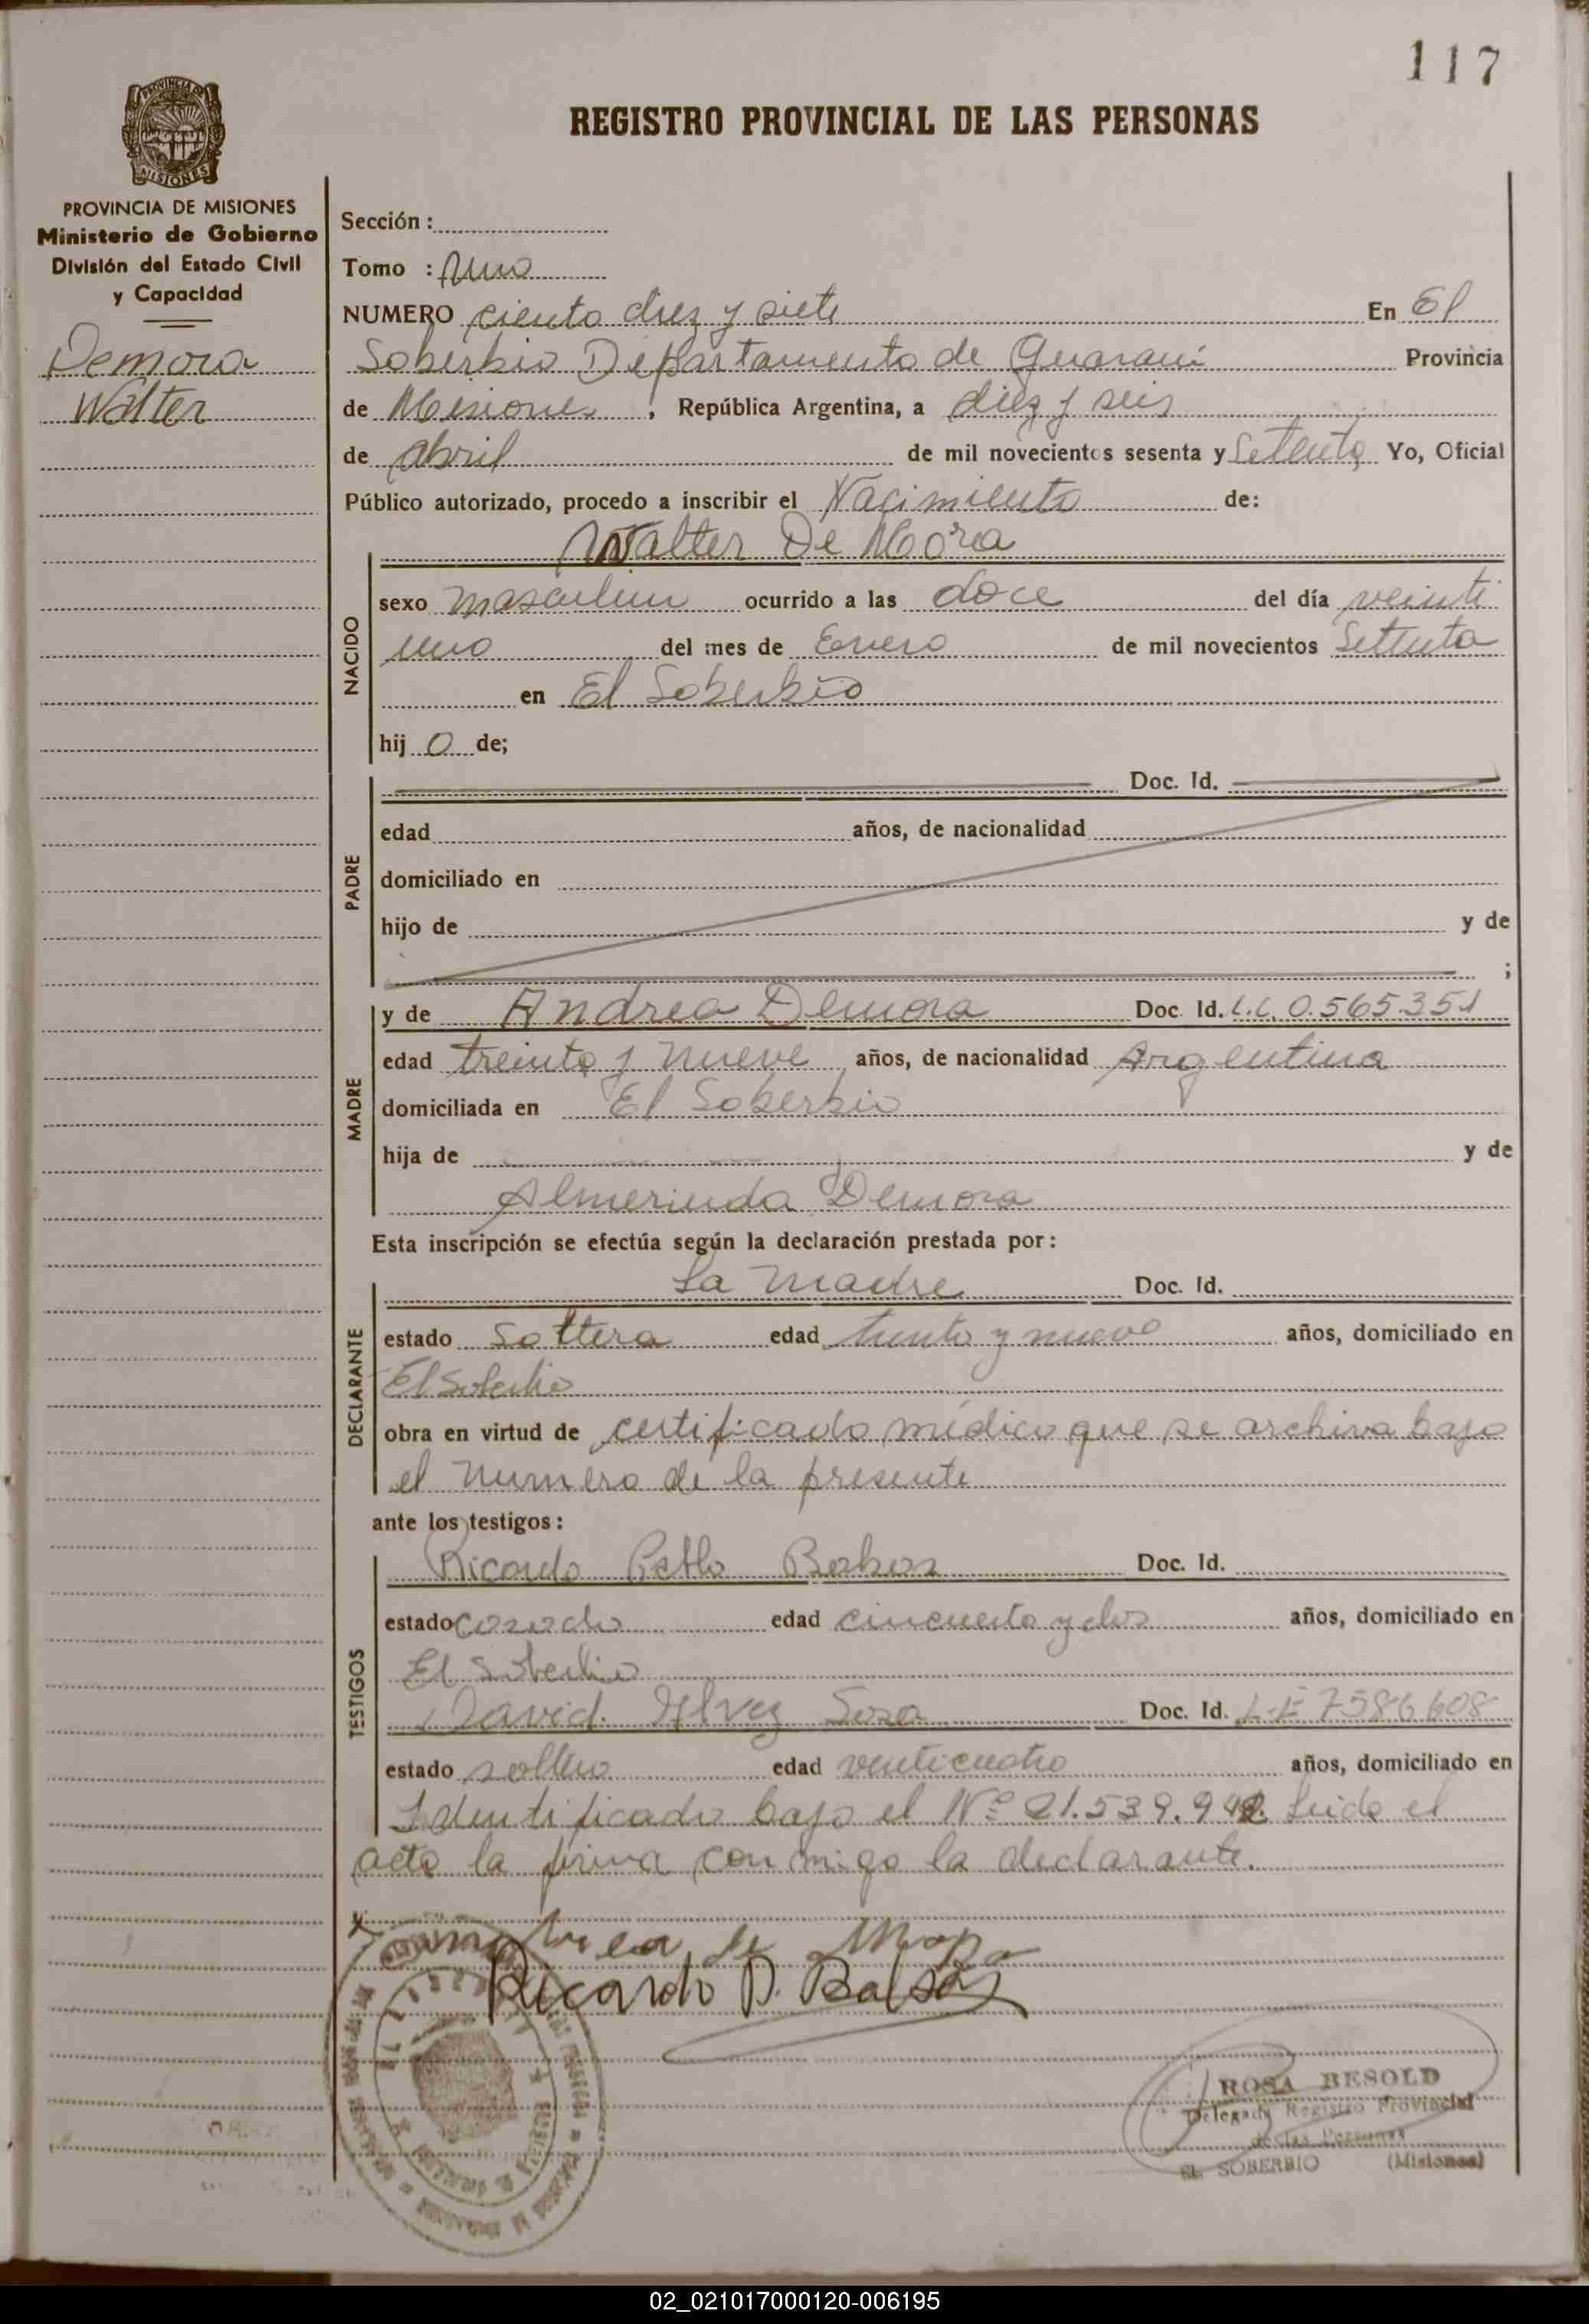 117
REGISTRO PROVINCIAL DE LAS PERSONAS
MISIONES
PROVINCIA DE MISIONES
Ministerio de Gobierno
División del Estado Civil
y Capacidad
Demora
Walter
Sección :
Tomo : Uno
NUMERO ciento diez y siete En El
Soberbio Departamento de Guaraní Provincia
de Misiones, República Argentina, a diez y seis
de abril de mil novecientos sesenta y Setenta Yo, Oficial
Público autorizado, procedo a inscribir el Nacimiento de:
Walter De Mora
NACIDO
sexo masculin ocurrido a las doce del día veinti
uno del mes de Enero de mil novecientos Setenta
en El Soberbio
hij o de;
PADRE
Doc. Id.
edad años, de nacionalidad
domiciliado en
hijo de y de
;
MADRE
y de Andrea Demora Doc. Id. L.C. 0.565.351
edad treinta y nueve años, de nacionalidad Argentina
domiciliada en El Soberbio
hija de y de
Almerinda Demora
Esta inscripción se efectúa según la declaración prestada por:
DECLARANTE
La Madre Doc. Id.
estado Soltera edad treinta y nueve años, domiciliado en
El Soberbio
obra en virtud de certificado médico que se archiva bajo
el numero de la presente
ante los testigos:
TESTIGOS
Ricardo Pablo Doc. Id.
estado casado edad cincuenta y dos años, domiciliado en
El Soberbio
David Alvez Soza Doc. Id. L-E 7586608
estado soltero edad venticuatro años, domiciliado en
Identificado bajo el Nº 21.539.942. Leida el
acta la firma conmigo la declarante.
de Mora
Ricardo P.
ROSA BESOLD
Delegada Registro Provincial
de las Personas
EL SOBERBIO (Misiones)
02_021017000120-006195